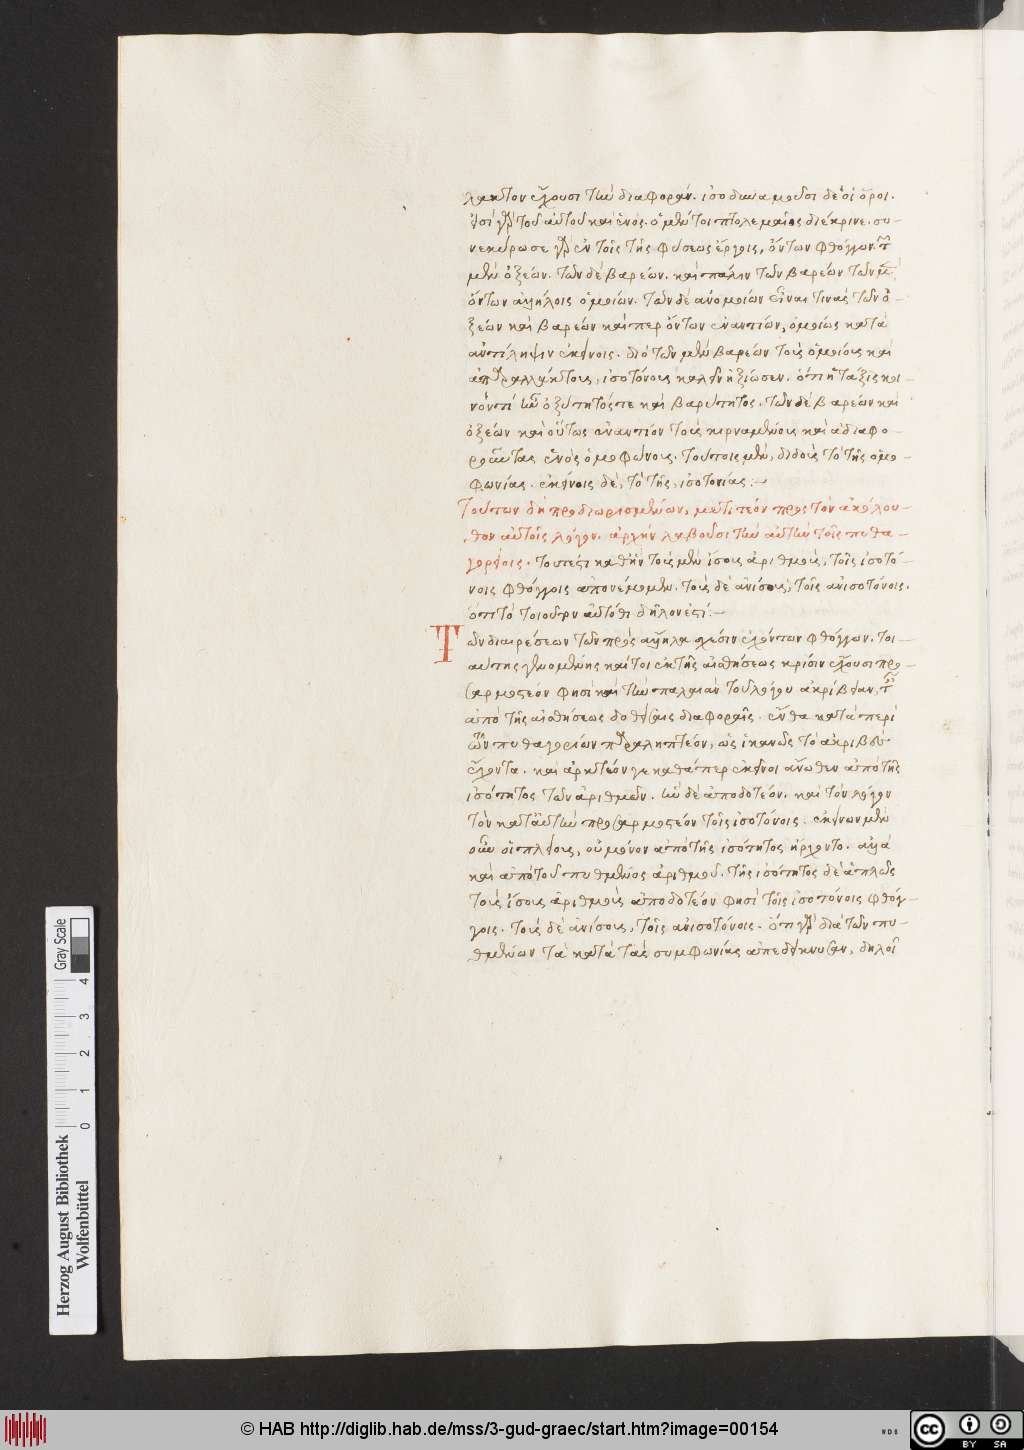 λακτον ἔχουσι τὴν διαφοράν. ἰσοδυναμοῦσι δὲ οἱ ὅροι.
τοῦ αὐτοῦ καὶ ἑνός. ὁ μέντοι πτολεμαῖος διέκρινε. συ-
νεκύρωσε γὰρ ἐν τοῖς τῆς φύσεως ἔργοις, ὄντων φθόγγων. τ̃
μὲν ὀξέων. τῶν δὲ βαρέων. καὶ πάλιν τῶν βαρέων τῶν μὲν
ὄντων ἀλλήλοις ὁμοίων. τῶν δὲ ἀνομοίων εἶναι τινὰς τῶν ὀ-
ξέων καὶ βαρέων καίπερ ὄντων ἐναντίων, ὁμοίως κατὰ
ἀντίληψιν ἐκείνοις. διὸ τῶν μὲν βαρέων τοὺς ὁμοίους καὶ
ἀπαραλλάκτους, ἰσοτόνους καλεῖν ἠξίωσεν. ὅτι ἡ τάξις κοι-
νὸν τί ἦν ὀξύτητός τε καὶ βαρύτητος. τῶν δὲ βαρέων καὶ
ὀξέων καὶ οὕτως ἐναντίον τοὺς κιρναμένους καὶ ἀδιαφο-
ροῦντας ἑνὸς ὁμοφώνους. τούτοις μὲν, διδοὺς τὸ τῆς ὁμο-
φωνίας. ἐκείνοις δὲ, τὸ τῆς ἰσοτονίας :-
Τούτων δὴ προδιωρισμένων, μετιτέον πρὸς τὸν ἀκόλου-
θον αὐτοῖς λόγον. ἀρχὴν λαβοῦσι τὴν αὐτὴν τοῖς πυθα-
γορείοις. τουτέστι καθ' ἣν τοὺς μὲν ἴσους ἀριθμοὺς, τοῖς ἰσοτό-
νοις φθόγγοις ἀπονέμομεν. τοὺς δὲ ἀνίσους, τοῖς ἀνισοτόνοις.
ὅτι τὸ τοιοῦτον αὐτόθι δῆλον ἐστί :-
Τῶν διαιρέσεων τῶν πρὸς ἄλληλα σχέσιν ἐχόντων φθόγγων. τοι-
αύτης γενομένης καί τοι ἐκ τῆς αἰσθήσεως κρίσιν ἔχουσι προ-
σαρμοστέον φησὶ καὶ τὴν παλαιὰν τοῦ λόγου ἀκρίβειαν, τ̃
ἀπὸ τῆς αἰσθήσεως δοθείσαις διαφοραῖς. ἔνθα κατὰ περὶ
ὧν πυθαγορίων παραληπτέον, ὡς ἱκανῶς τὸ ἀκριβὲς
ἔχοντα. καὶ ἀρκτέον γε καθάπερ ἐκεῖνοι ἄνωθεν ἀπὸ τῆς
ἰσότητος τῶν ἀριθμῶν. ἣν δὲ ἀποδοτέον. καὶ τὸν λόγον
τὸν κατ' αὐτὴν προσαρμοστέον τοῖς ἰσοτόνοις. ἐκείνων μὲν
οὖν οἱ πλείους, οὐ μόνον ἀπὸ τῆς ἰσότητος ἤρχοντο. ἀλλὰ
καὶ ἀπὸ τοῦ πυθμένος ἀριθμοῦ. τῆς ἰσότητος δὲ ἁπλῶς
τοὺς ἴσους ἀριθμοὺς ἀποδοτέον φησὶ τοῖς ἰσοτόνοις φθόγ-
γοις. τοὺς δὲ ἀνίσους, τοῖς ἀνισοτόνοις. ὅτι γὰρ διὰ τῶν πυ-
θμένων τὰ κατὰ τὰς συμφωνίας ἀπεδείκνυσαν, δηλοῖ
Herzog August Bibliothek
Wolfenbüttel
0 1 2 3 4
Gray Scale
© HAB http://diglib.hab.de/mss/3-gud-graec/start.htm?image=00154
WDB
cc BY SA